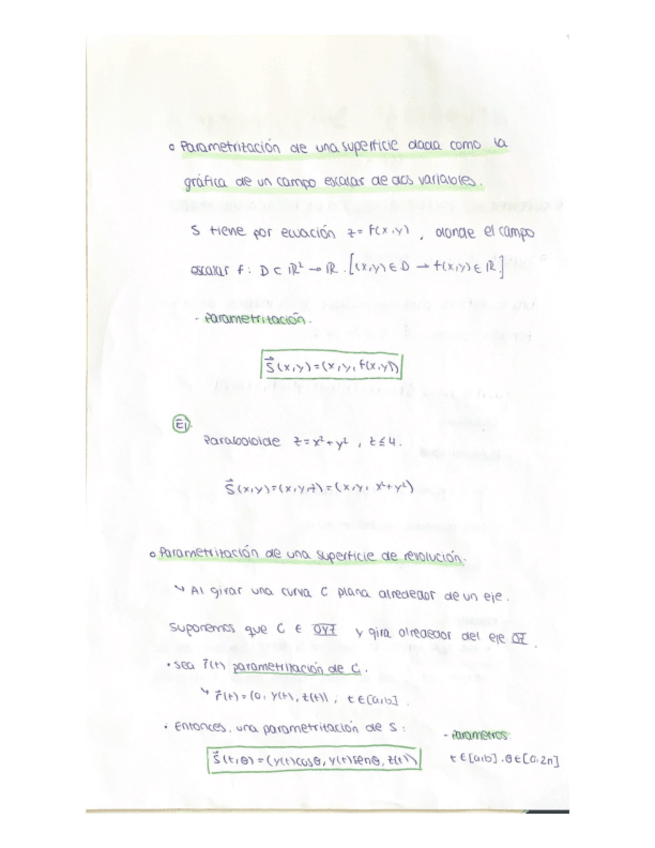 o Parametritación de una superficie dada como la
gráfica de un campo escalar de dos variables.
S tiene por ecuación z=f(x,y), donde el campo
escalar f: D ⊂ ℝ² → ℝ. [(x,y) ∈ D → f(x,y) ∈ ℝ.]
- Parametritación.
S⃗(x,y)=(x,y,f(x,y))
Ej
Paraboloide z=x²+y², z≤4.
S⃗(x,y)=(x,y,z)=(x,y, x²+y²)
o Parametritación de una superficie de revolución.
↳ Al girar una curva C plana alrededor de un eje.
Suponemos que C ∈ OYZ y gira alrededor del eje OZ.
• Sea r⃗(t) parametritación de C.
↳ r⃗(t)=(0, y(t), z(t)), t∈[a,b].
• Entonces, una parametritación de S:
- Parámetros:
S⃗(t,θ)=(y(t)cosθ, y(t)senθ, z(t))
t∈[a,b]. θ∈[0,2π]